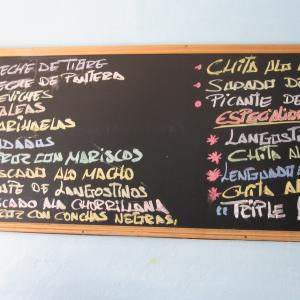 ECHE DE TIGRE
ECHE DE PANTERA
EVICHES
ALEAS
ARIHUELAS
UDADOS
ROZ CON MARISCOS
SCADO A LO MACHO
DE LANGOSTINOS
SCADO A LA CHORRILLANA
ROZ CON CONCHAS NEGRAS,
CHITA A LO A
SUDADO D
PICANTE DE
ESPECIALIDA
LANGOST
CHITA AL
LENGUADO A
CHITA A
TRIPLE